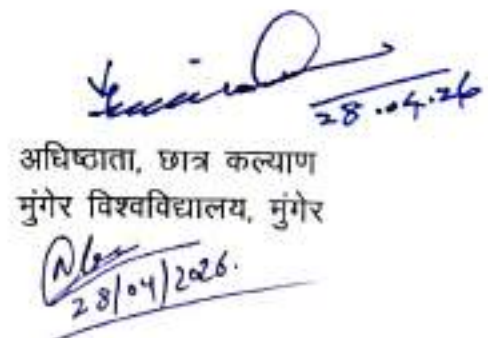 28.04.26
अधिष्ठाता, छात्र कल्याण
मुंगेर विश्वविद्यालय, मुंगेर
28/04/2026.